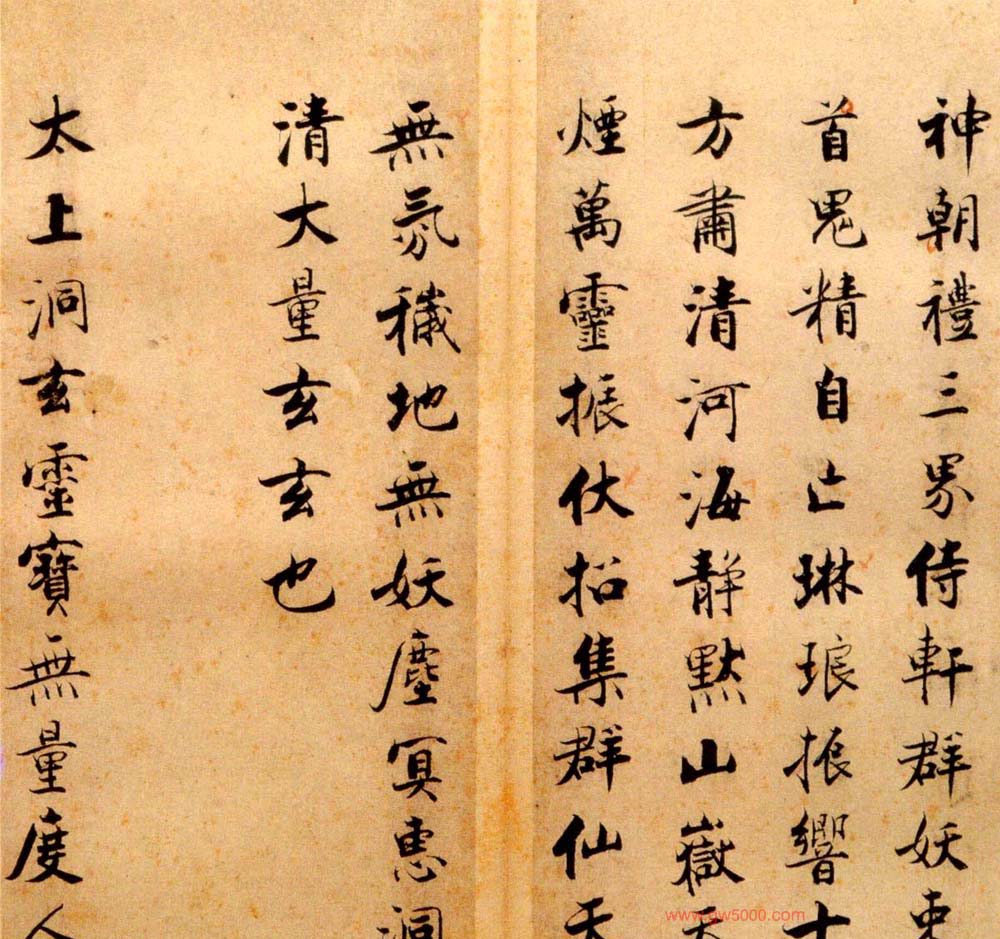 神朝禮三界侍軒群妖束
首鬼精自亡琳琅振響十
方肅清河海静默山嶽
煙萬靈振伏招集群仙天
無氛穢地無妖塵冥惠洞
清大量玄玄也
太上洞玄靈寶無量度人
www.gw5000.com